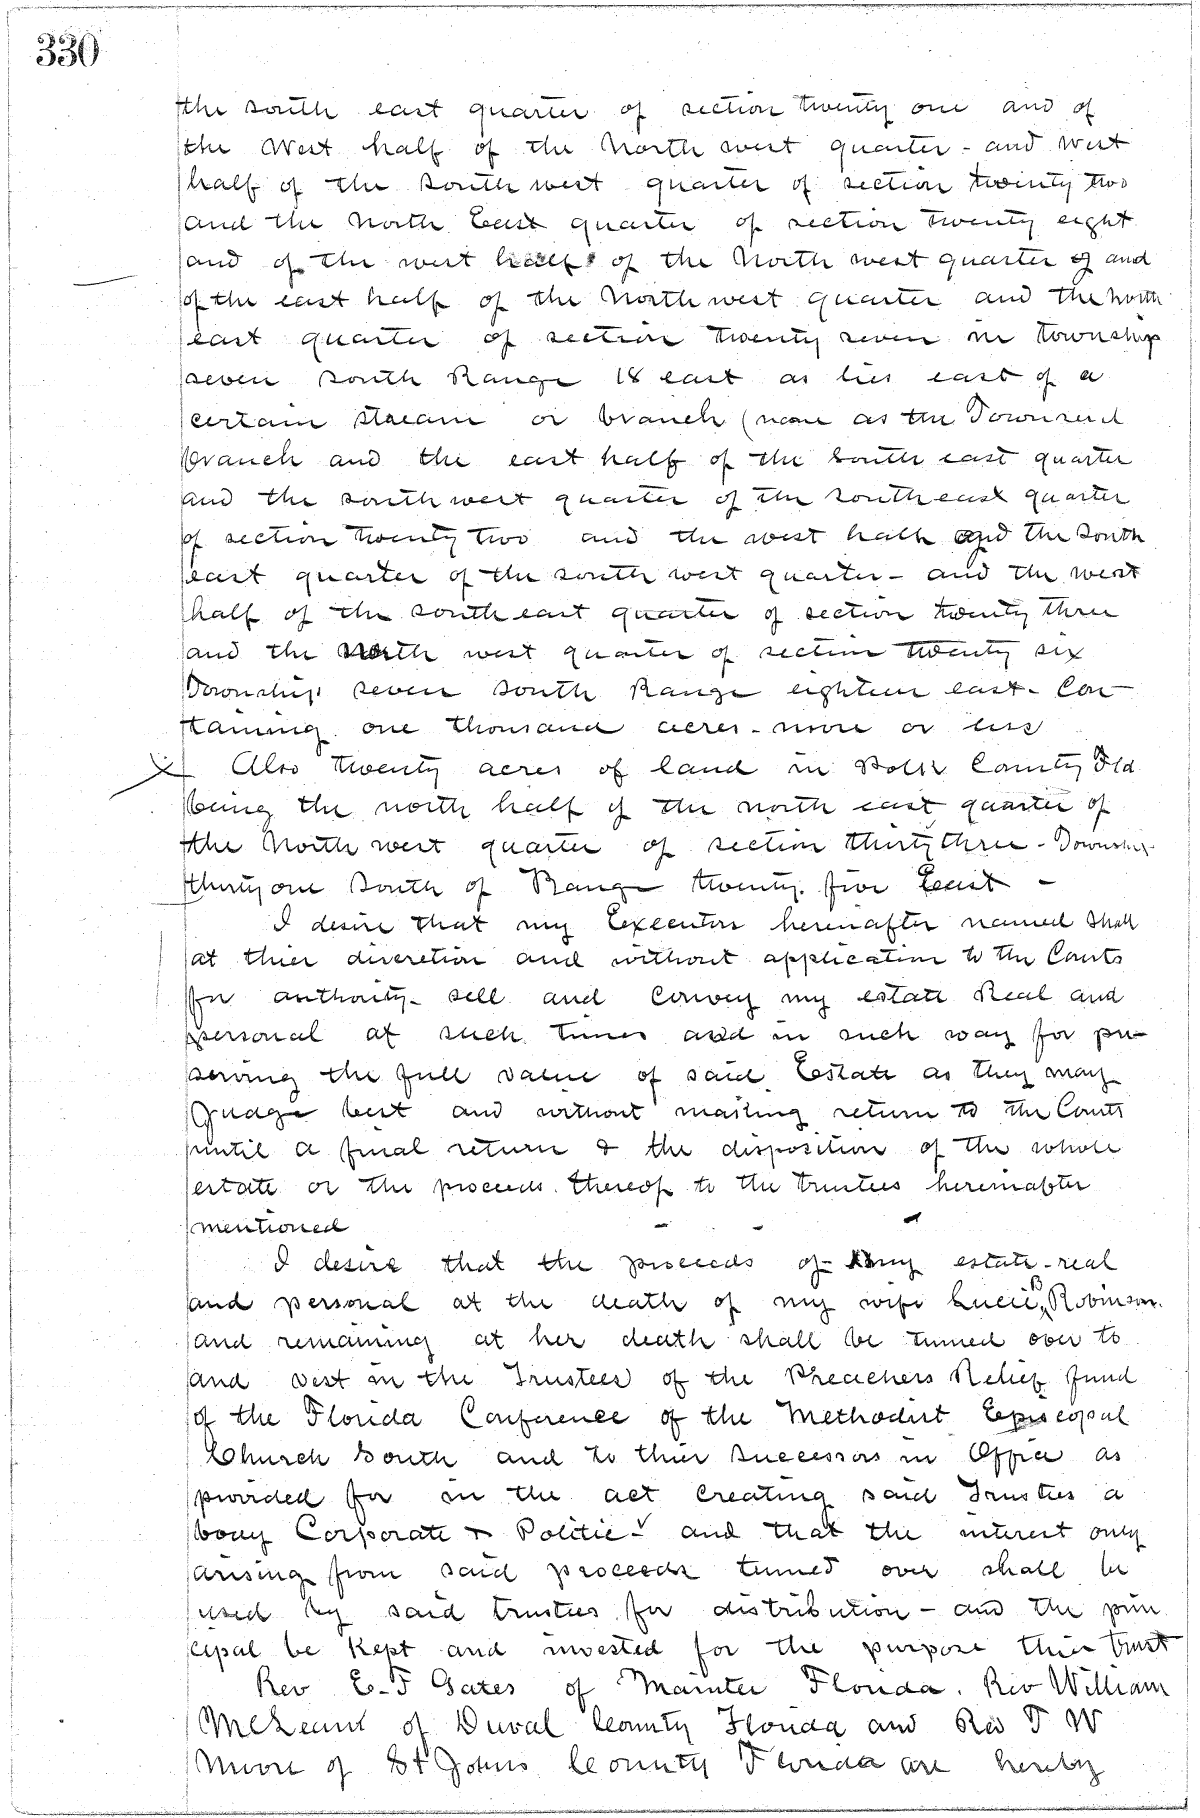 330
the south east quarter of section twenty one and of
the West half of the North west quarter - and west
half of the south west quarter of section twenty two
and the North East quarter of section twenty eight
and of the west half of the North west quarter of and
of the east half of the North west quarter and the north
east quarter of section twenty seven in township
seven south Range 18 east as lies east of a
certain stream or branch (none as the Townsend
branch and the east half of the South east quarter
and the south west quarter of the south east quarter
of section twenty two and the west half and the south
east quarter of the south west quarter - and the west
half of the south east quarter of section twenty three
and the North west quarter of section twenty six
Township seven south Range eighteen east - Con
taining one thousand acres - more or less
X Also twenty acres of land in Polk County Fla
being the north half of the north east quarter of
the North west quarter of section thirty three - Township
thirty one South of Range twenty five East -
I desire that my Executors hereinafter named shall
at thier discretion and without application to the Courts
for authority - sell and convey my estate Real and
personal at such times and in such way for pre-
serving the full value of said Estate as they may
Judge best and without making return to the Courts
until a final return & the disposition of the whole
estate or the proceeds thereof to the trustees hereinafter
mentioned
I desire that the proceeds of my estate - real
and personal at the death of my wife Lucie B Robinson.
and remaining at her death shall be turned over to
and vest in the Trustees of the Preachers Relief fund
of the Florida Conference of the Methodist Episcopal
Church South and to thier successors in Office as
provided for in the act creating said Trustees a
body Corporate & Politic - and that the interest only
arising from said proceeds turned over shall be
used by said trustees for distribution - and the prin
cipal be kept and invested for the purpose thier trust
Rev E. F Gates of Florida. Rev William
McLean of Duval County Florida and Rev T W
Moore of St Johns County Florida are hereby